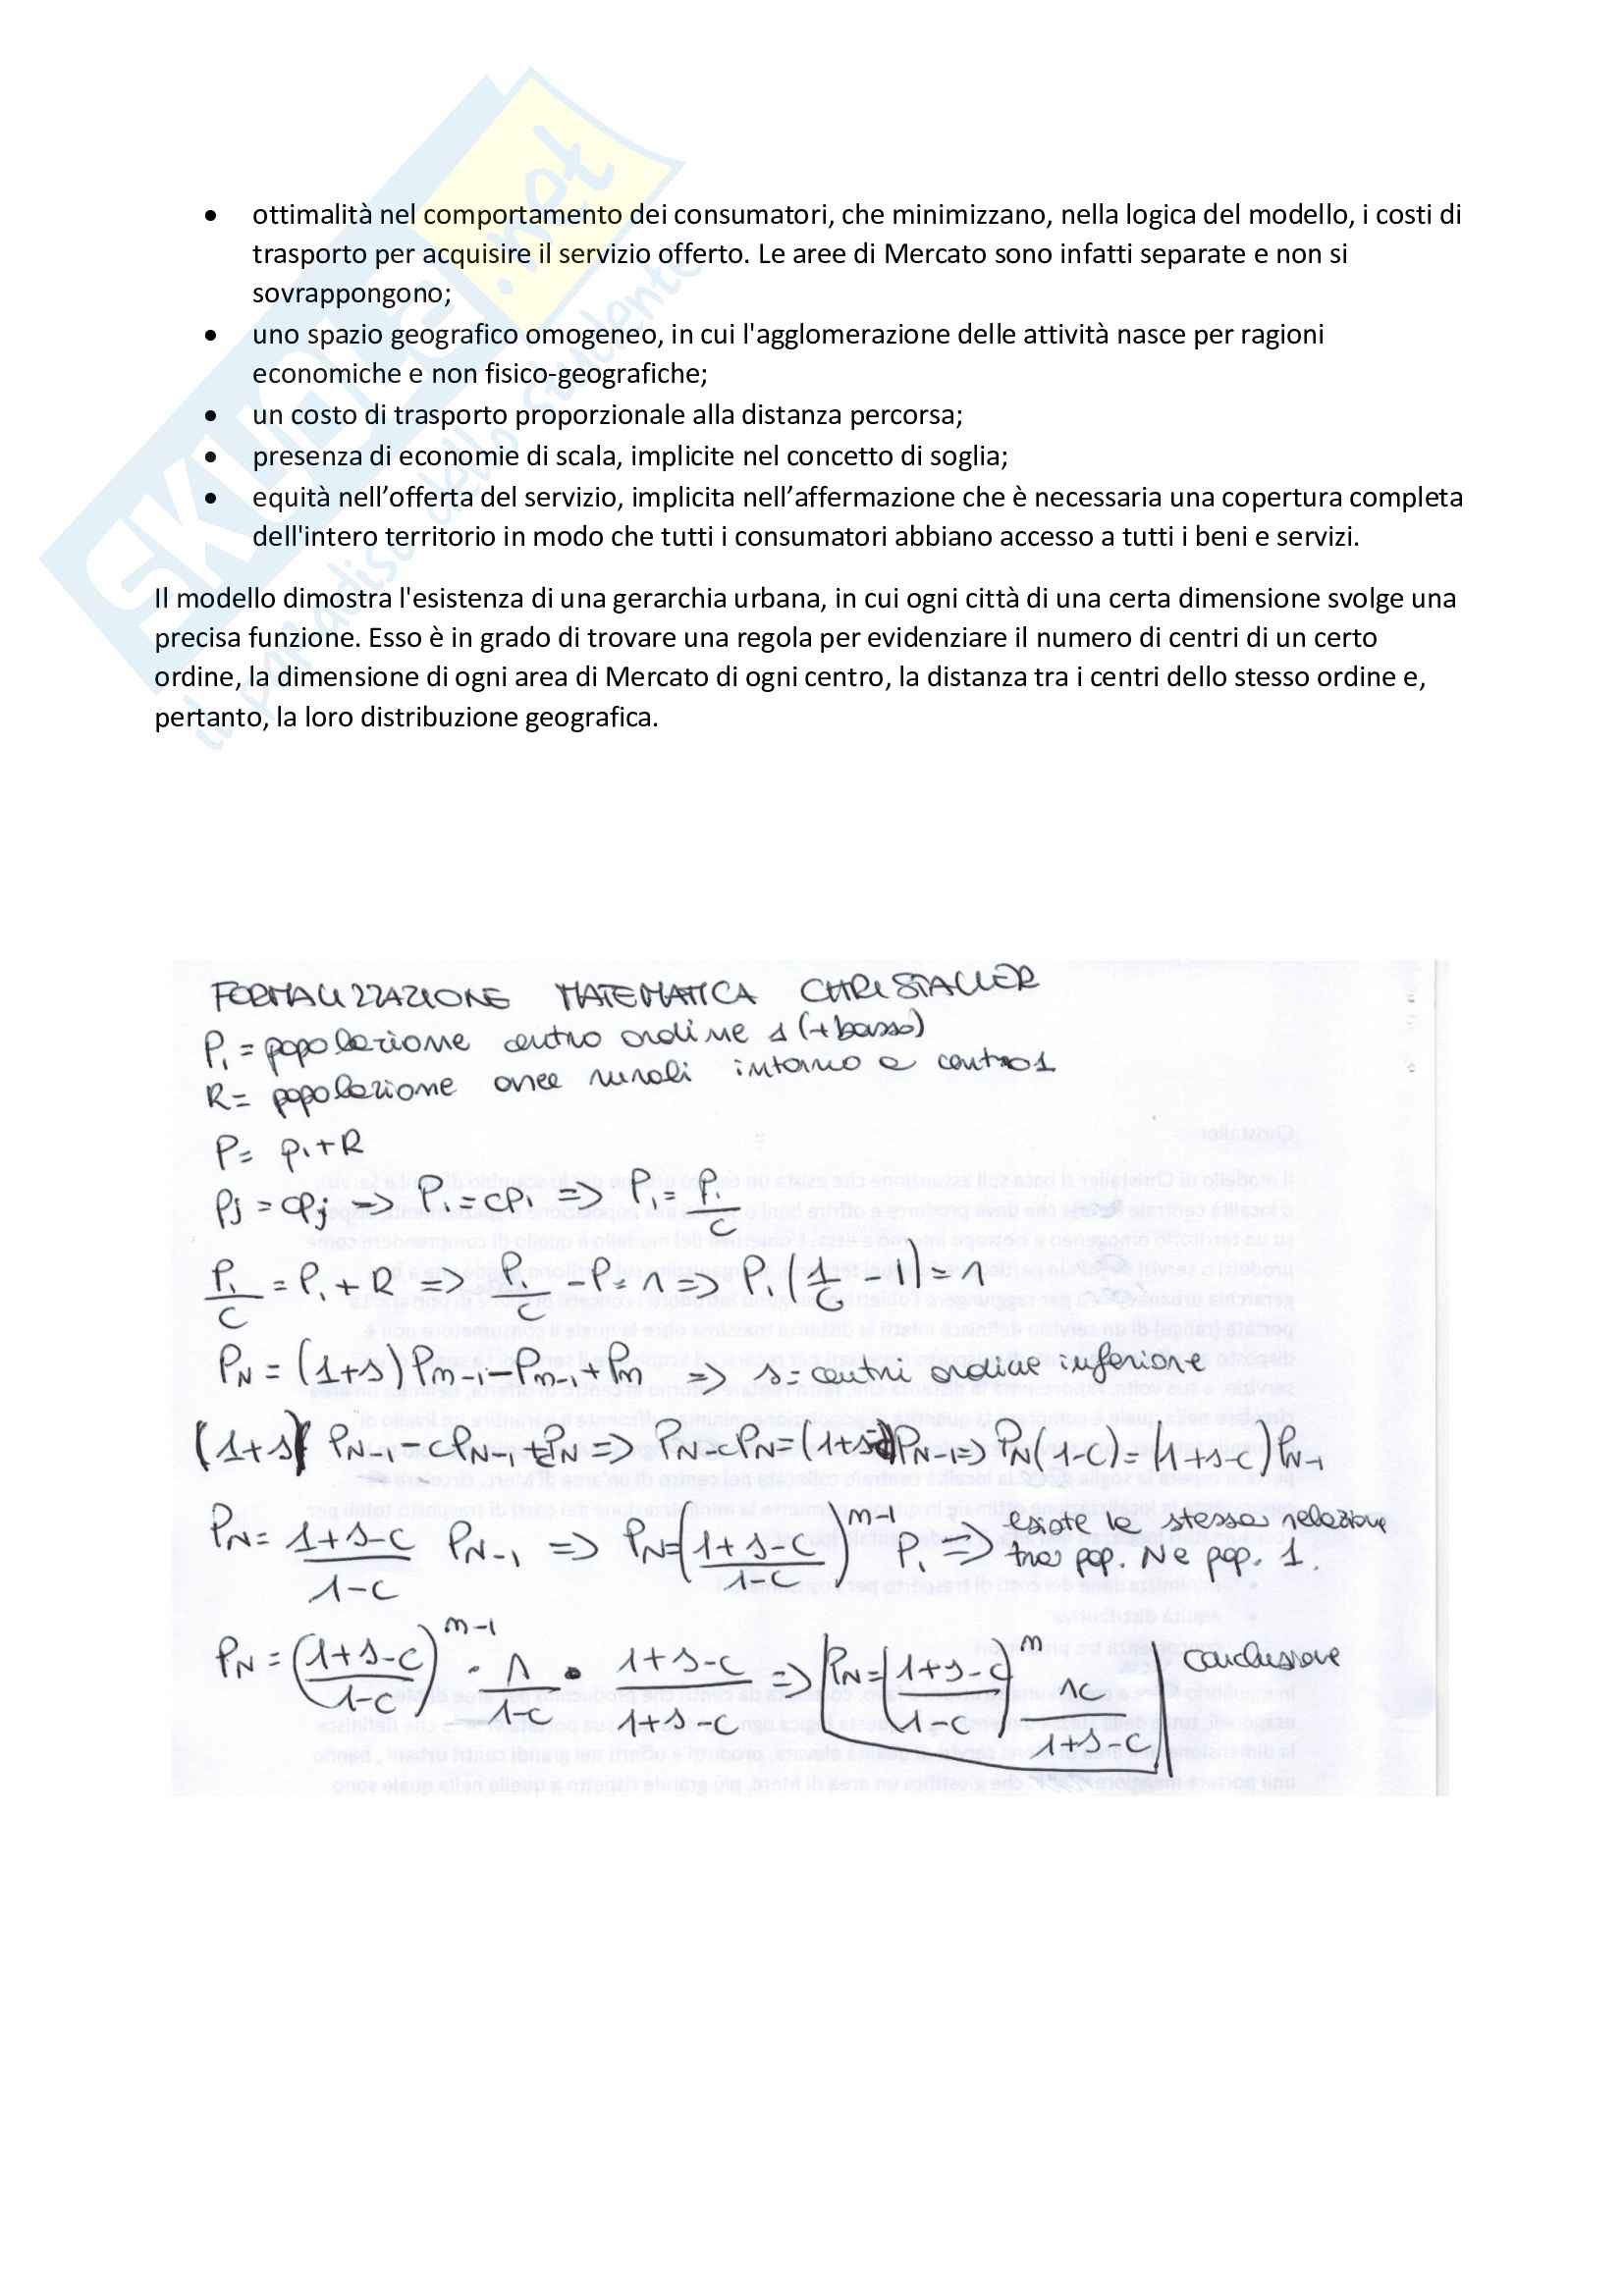 SKUOLA.net
il paradiso dello studente
• ottimalità nel comportamento dei consumatori, che minimizzano, nella logica del modello, i costi di
trasporto per acquisire il servizio offerto. Le aree di Mercato sono infatti separate e non si
sovrappongono;
• uno spazio geografico omogeneo, in cui l'agglomerazione delle attività nasce per ragioni
economiche e non fisico-geografiche;
• un costo di trasporto proporzionale alla distanza percorsa;
• presenza di economie di scala, implicite nel concetto di soglia;
• equità nell’offerta del servizio, implicita nell’affermazione che è necessaria una copertura completa
dell'intero territorio in modo che tutti i consumatori abbiano accesso a tutti i beni e servizi.
Il modello dimostra l'esistenza di una gerarchia urbana, in cui ogni città di una certa dimensione svolge una
precisa funzione. Esso è in grado di trovare una regola per evidenziare il numero di centri di un certo
ordine, la dimensione di ogni area di Mercato di ogni centro, la distanza tra i centri dello stesso ordine e,
pertanto, la loro distribuzione geografica.
FORMALIZZAZIONE MATEMATICA CHRISTALLER
P₁ = popolazione centro ordine 1 (+basso)
R = popolazione aree rurali intorno a centro 1
P = p₁+R
pj = cPj => P₁ = cP₁ => P₁ = P₁/c
P₁/c = P₁ + R => P₁/c - P = r => P₁ (1/c - 1) = r
PN = (1+s) Pm-1 - Pm-1 + Pm => s = centri ordine inferiore
(1+s) PN-1 - cPN-1 + cPN => PN-cPN = (1+s-c)PN-1 => PN(1-c) = (1+s-c)PN-1
PN = (1+s-c)/(1-c) PN-1 => PN = ((1+s-c)/(1-c))^(m-1) P₁ => esiste la stessa relazione
tra pop. N e pop. 1.
PN = ((1+s-c)/(1-c))^(m-1) · r/(1-c) · (1+s-c)/(1+s-c) => PN = ((1+s-c)/(1-c))^m rc/(1+s-c) conclusione